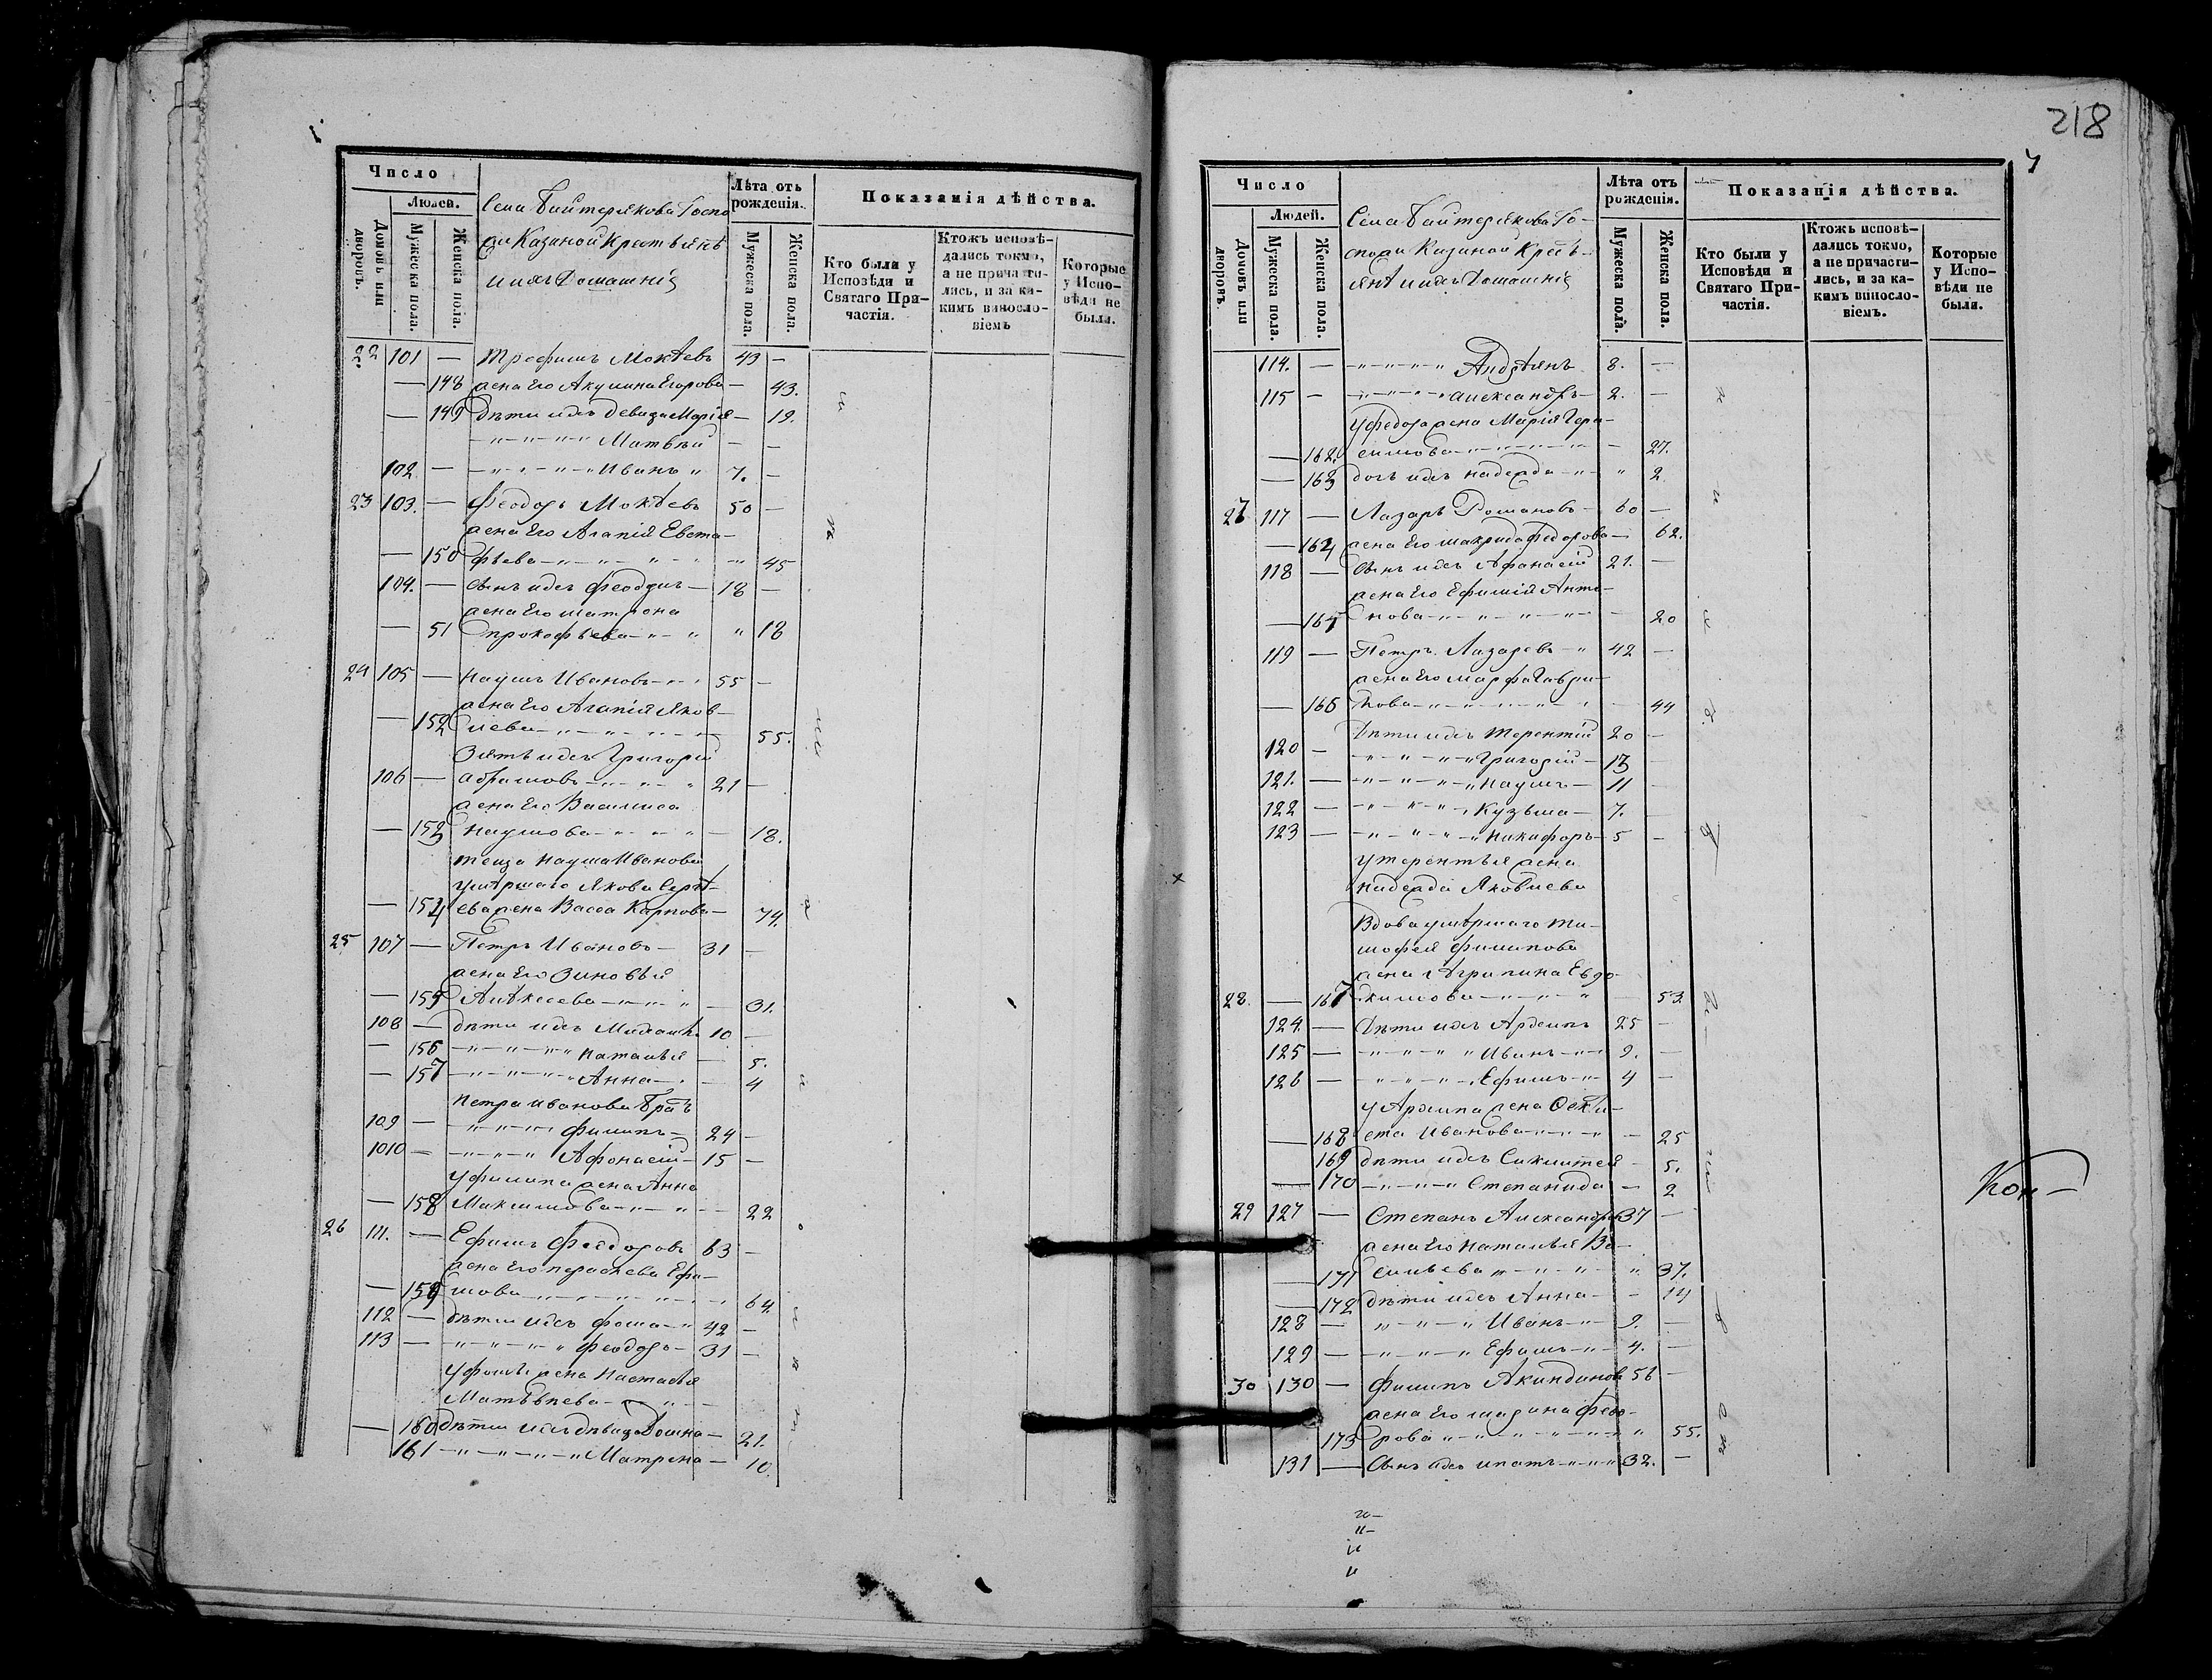 218
Число
Людей.
Домовъ или дворовъ.
Мужеска пола.
Женска пола.
Села Байтерякова Госпо
да Казиной Крестьянѣ
и ихъ Домашнія
Лѣта отъ рожденія.
Мужеска пола.
Женска пола.
Показанія дѣйства.
Кто были у Исповѣди и Святаго При-частія.
Ктожъ исповѣ-дались токмо, а не причасти-лись, и за ка-кимъ винословіемъ
Которые у Испо-вѣди не были.
22 101 — Трофимъ Мокѣевъ 43 —
— 148 жена Его Акулина Егорова — 43.
— 149 дѣти ихъ девица Марія — 19.
Матвѣй — —
102 — Иванъ 7. —
23 103. — Феодоръ Мокѣевъ 50 —
жена Его Агапія Евста-
— 150 фѣева 45
104. — сынъ ихъ Феодулъ 18 —
жена Его матрона
— 51 прокофьева 18
24 105 — Наумъ Ивановъ 55 —
жена Его Агапія Яков-
— 152 лева 55.
Зятъ ихъ Григорій
106 — абрамовъ 21 —
жена Его Василиса
— 153 наумова — 18.
теща Наума Иванова
умѣршаго Якова Сергѣ-
— 154 ева жена Васса Карпова — 74.
25 107 — Петръ Ивановъ — 31 —
жена Его Зиновья
— 155 Алѣксеева — 31.
108 — дѣти ихъ Михаилъ 10 —
— 156 наталья — 5.
— 157 Анна — 4
петра иванова братъ
109 — Филипъ — 24 —
1010 — Афонасій — 15 —
у филипа жена Анна
— 158 Максимова — 22
26 111. — Ефимъ Феодоровъ 63 —
жена Его параскева Ефи-
— 159 мова 64.
112 — дѣти ихъ фома 42 —
113 — феодоръ — 31 —
у фомы жена настасья
Матвѣева —
— 160 дѣти ихъ дѣвица Домна — 21.
161 Матрена — 10.
Число
Людей.
Домовъ или дворовъ.
Мужеска пола
Женска пола.
Села Байтерякова Го-
спожи Казиной Крестъ-
янѣ и ихъ Домашнія
Лѣта отъ рожденія.
Мужеска пола.
Женска пола.
Показанія дѣйства.
Кто были у Исповѣди и Святаго При-частія.
Ктожъ исповѣ-дались токмо, а не причасти-лись, и за ка-кимъ винослові-емъ.
Которые у Испо-вѣди не были.
114. — Андрѣянъ 8. —
115 — александръ — 2. —
у федора жена Марія Гера-
— 162. симова — 27.
— 163 дочь ихъ надежда 2
27 117 — Лазаръ Романовъ — 60 —
— 164 жена Его макрида федорова — 62.
118 — сынъ ихъ Афанасій 21. —
жена Его Ефимія Анто-
— 165 нова — 20
119 — Петръ Лазаревъ 42 —
жена Его марфа Гаври-
— 166 лова — 44
120 — дѣти ихъ терентій 20 —
Григорій — 13
121. — Наумъ — 11
122 — Кузьма — 7.
123 — никифоръ — 5 —
у терентья жена
надежда Яковлева
Вдова умѣршаго ти-
мофея филипова
жена Агрипина Евдо-
28. — 167 кимова — 53
124. — дѣти ихъ Архипъ 25 —
125 — Иванъ 9. —
126 — Ефимъ 4 —
у Архипа жена Фекли-
— 168 ста Иванова — 25
169 дѣти ихъ — 5.
— 170 Степанида — 2
29 127 — Степанъ Александровъ 37 —
жена Его наталья Ва-
— 171 сильева 37.
— 172 дѣти ихъ Анна — 14
128 — Иванъ 9. —
129 — Ефимъ 4. —
30 130 — филипъ Акиндиновъ 56 —
жена Его марина федо-
173 рова 55.
131 — сынъ ихъ ипатъ 32. —
Кон-